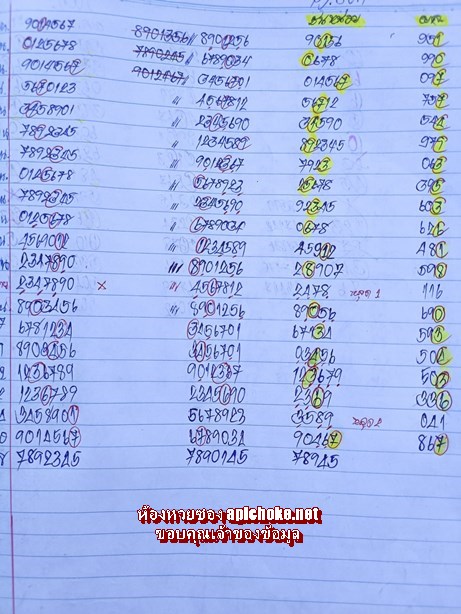 9014567 8901356// 8901256 90156 951
0145678 7890245// 6789034 0678 990
9014567 9012467// 3456701 014567 097
5670123 /// 4567812 56712 797
3458901 /// 2345690 34590 542
7892345 /// 1234589 892345 279
7892345 /// 9012367 7923 063
0145678 /// 5678923 5678 395
7892345 /// 2345690 92345 603
0145678 /// 6789034 0678 626
4569012 /// 0234589 45902 481
2347890 /// 8901256 28907 598
2347890 × /// 4567812 2478 หลุด 1 116
8903456 /// 8901256 89056 690
6781234 3456701 67134 593
8903456 3456701 03456 504
1236789 9012367 123679 503
1236789 2345690 2369 336
3458901 5678923 3589 หลุด 2 041
9014567 6789034 90467 867
7892345 7890145 78945
ห้องหวยซอง apichoke.net
ขอบคุณเจ้าของข้อมูล